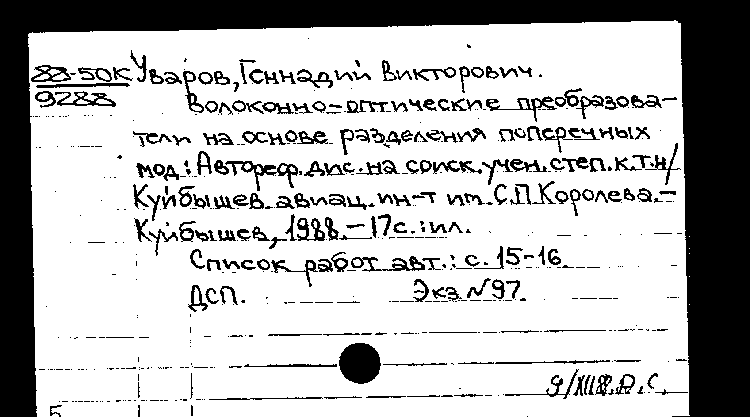 88-50К Уваров, Геннадий Викторович.
9288 Волоконно-оптические преобразова-
тели на основе разделения поперечных
мод: Автореф. дис. на соиск. учен. степ. к.т.н/
Куйбышев. авиац. ин-т им. С.П.Королева.-
Куйбышев, 1988.-17с.:ил.
Список работ авт.: с. 15-16.
ДСП. Экз N97.